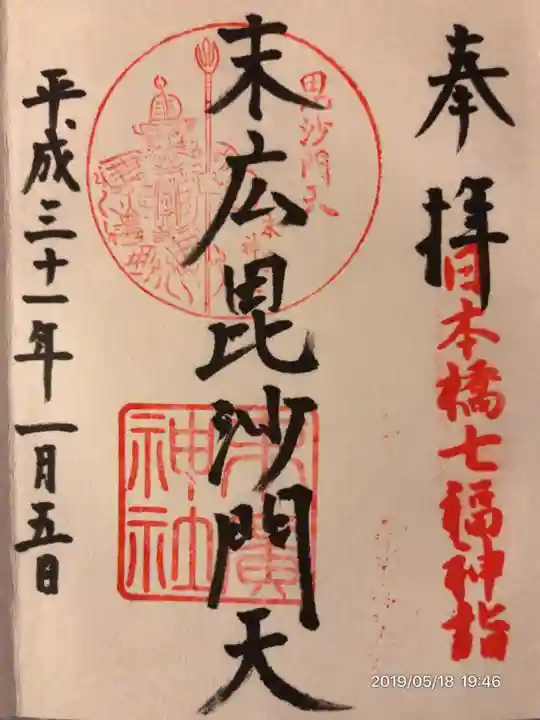 奉拝
日本橋七福神詣
毘沙門天
末広毘沙門天
末廣神社
平成三十一年一月五日
2019/05/18 19:46